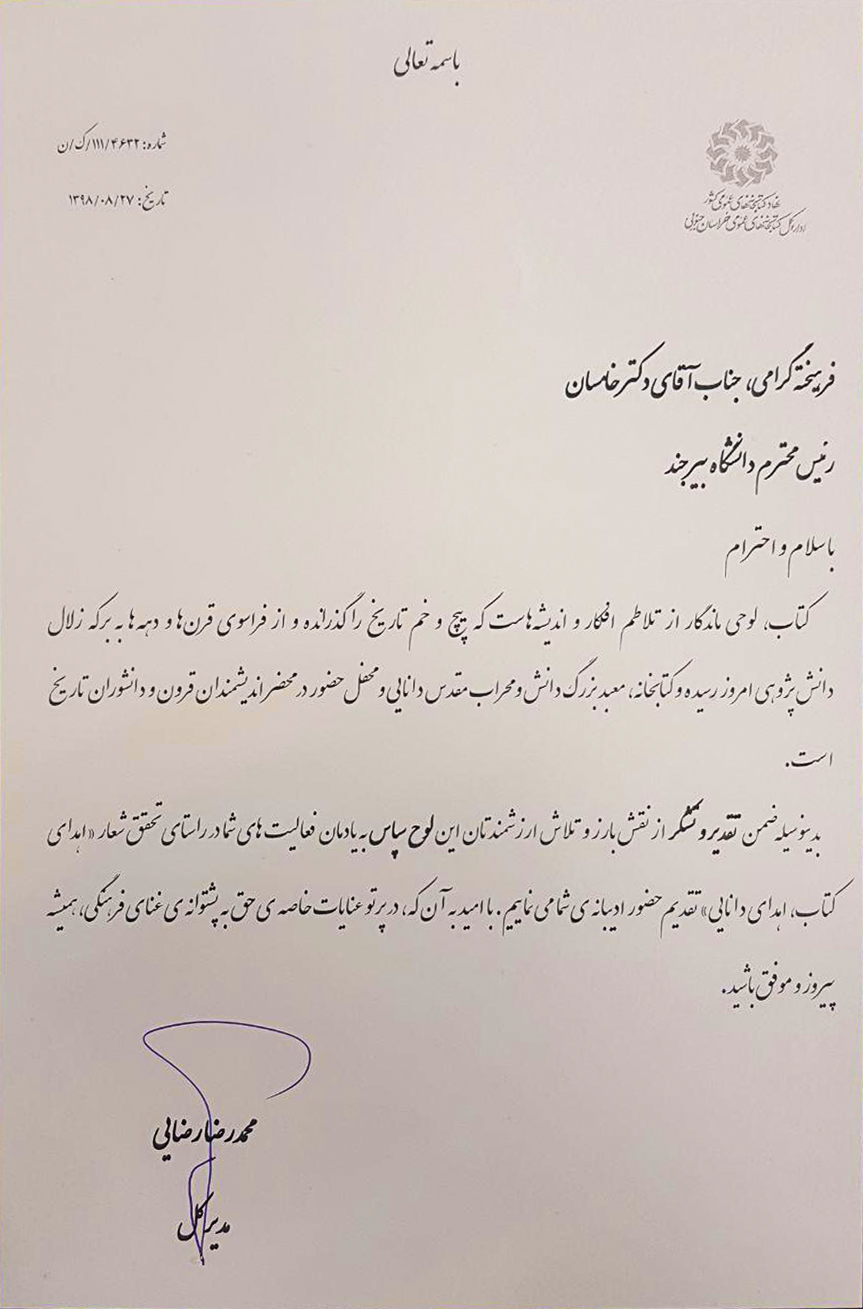 باسمه تعالی
شماره: ۱۱۱/۴۶۳۲/ک/ن
تاریخ: ۱۳۹۸/۰۸/۲۷
نهاد کتابخانه‌های عمومی کشور
اداره کل کتابخانه‌های عمومی خراسان جنوبی
فرهیخته گرامی، جناب آقای دکتر خامسان
رئیس محترم دانشگاه بیرجند
با سلام و احترام
کتاب، لوحی ماندگار از تلاطم افکار و اندیشه‌هاست که پیچ و خم تاریخ را گذرانده و از فراسوی قرن‌ها و دهه‌ها به برکه زلال
دانش پژوهی امروز رسیده و کتابخانه، معبد بزرگ دانش و محراب مقدس دانایی و محفل حضور در محضر اندیشمندان قرون و دانشوران تاریخ
است.
بدینوسیله ضمن تقدیر و تشکر از نقش بارز و تلاش ارزشمندتان این لوح سپاس به یادمان فعالیت های شما در راستای تحقق شعار «اهدای
کتاب، اهدای دانایی» تقدیم حضور ادیبانه ی شما می نماییم. با امید به آن که، در پرتو عنایات خاصه ی حق به پشتوانه ی غنای فرهنگی، همیشه
پیروز و موفق باشید.
محمدرضا رضایی
مدیر کل